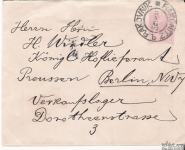 Herrn Herrn
H. Windler
Königl. Hoflieferant
Preussen Berlin, N.W.7
Verkaufslager
Dorotheenstrasse
3